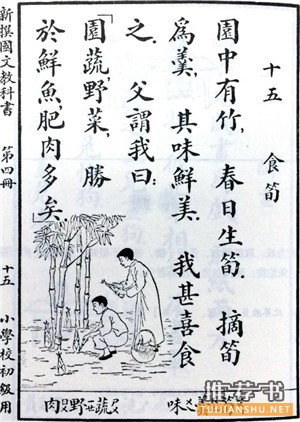 十五　食筍
園中有竹，春日生筍．摘筍
爲羹，其味鮮美．我甚喜食
之．父謂我曰：
「園蔬，野菜，勝
於鮮魚，肥肉多矣．」
新撰國文教科書　第四冊　十五　小學校初級用
味
蔬
野
肉
推荐书
WWW.TUIJIANSHU.NET